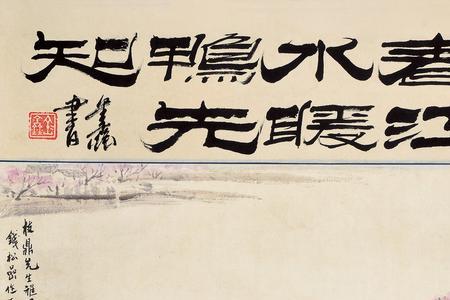 春江
水暖
鴨先
知
書
鼎先生雅
錢松喦作